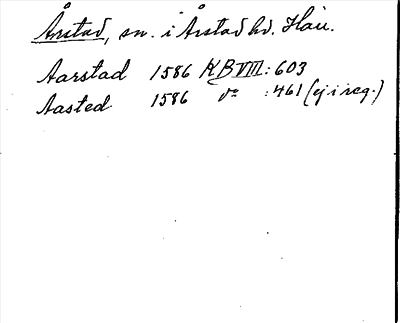 Årstad, sn. i Årstad hd. Hall.
Aarstad 1586 KB VIII: 603
Aasted 1586 d:o :461 (ej i reg.)